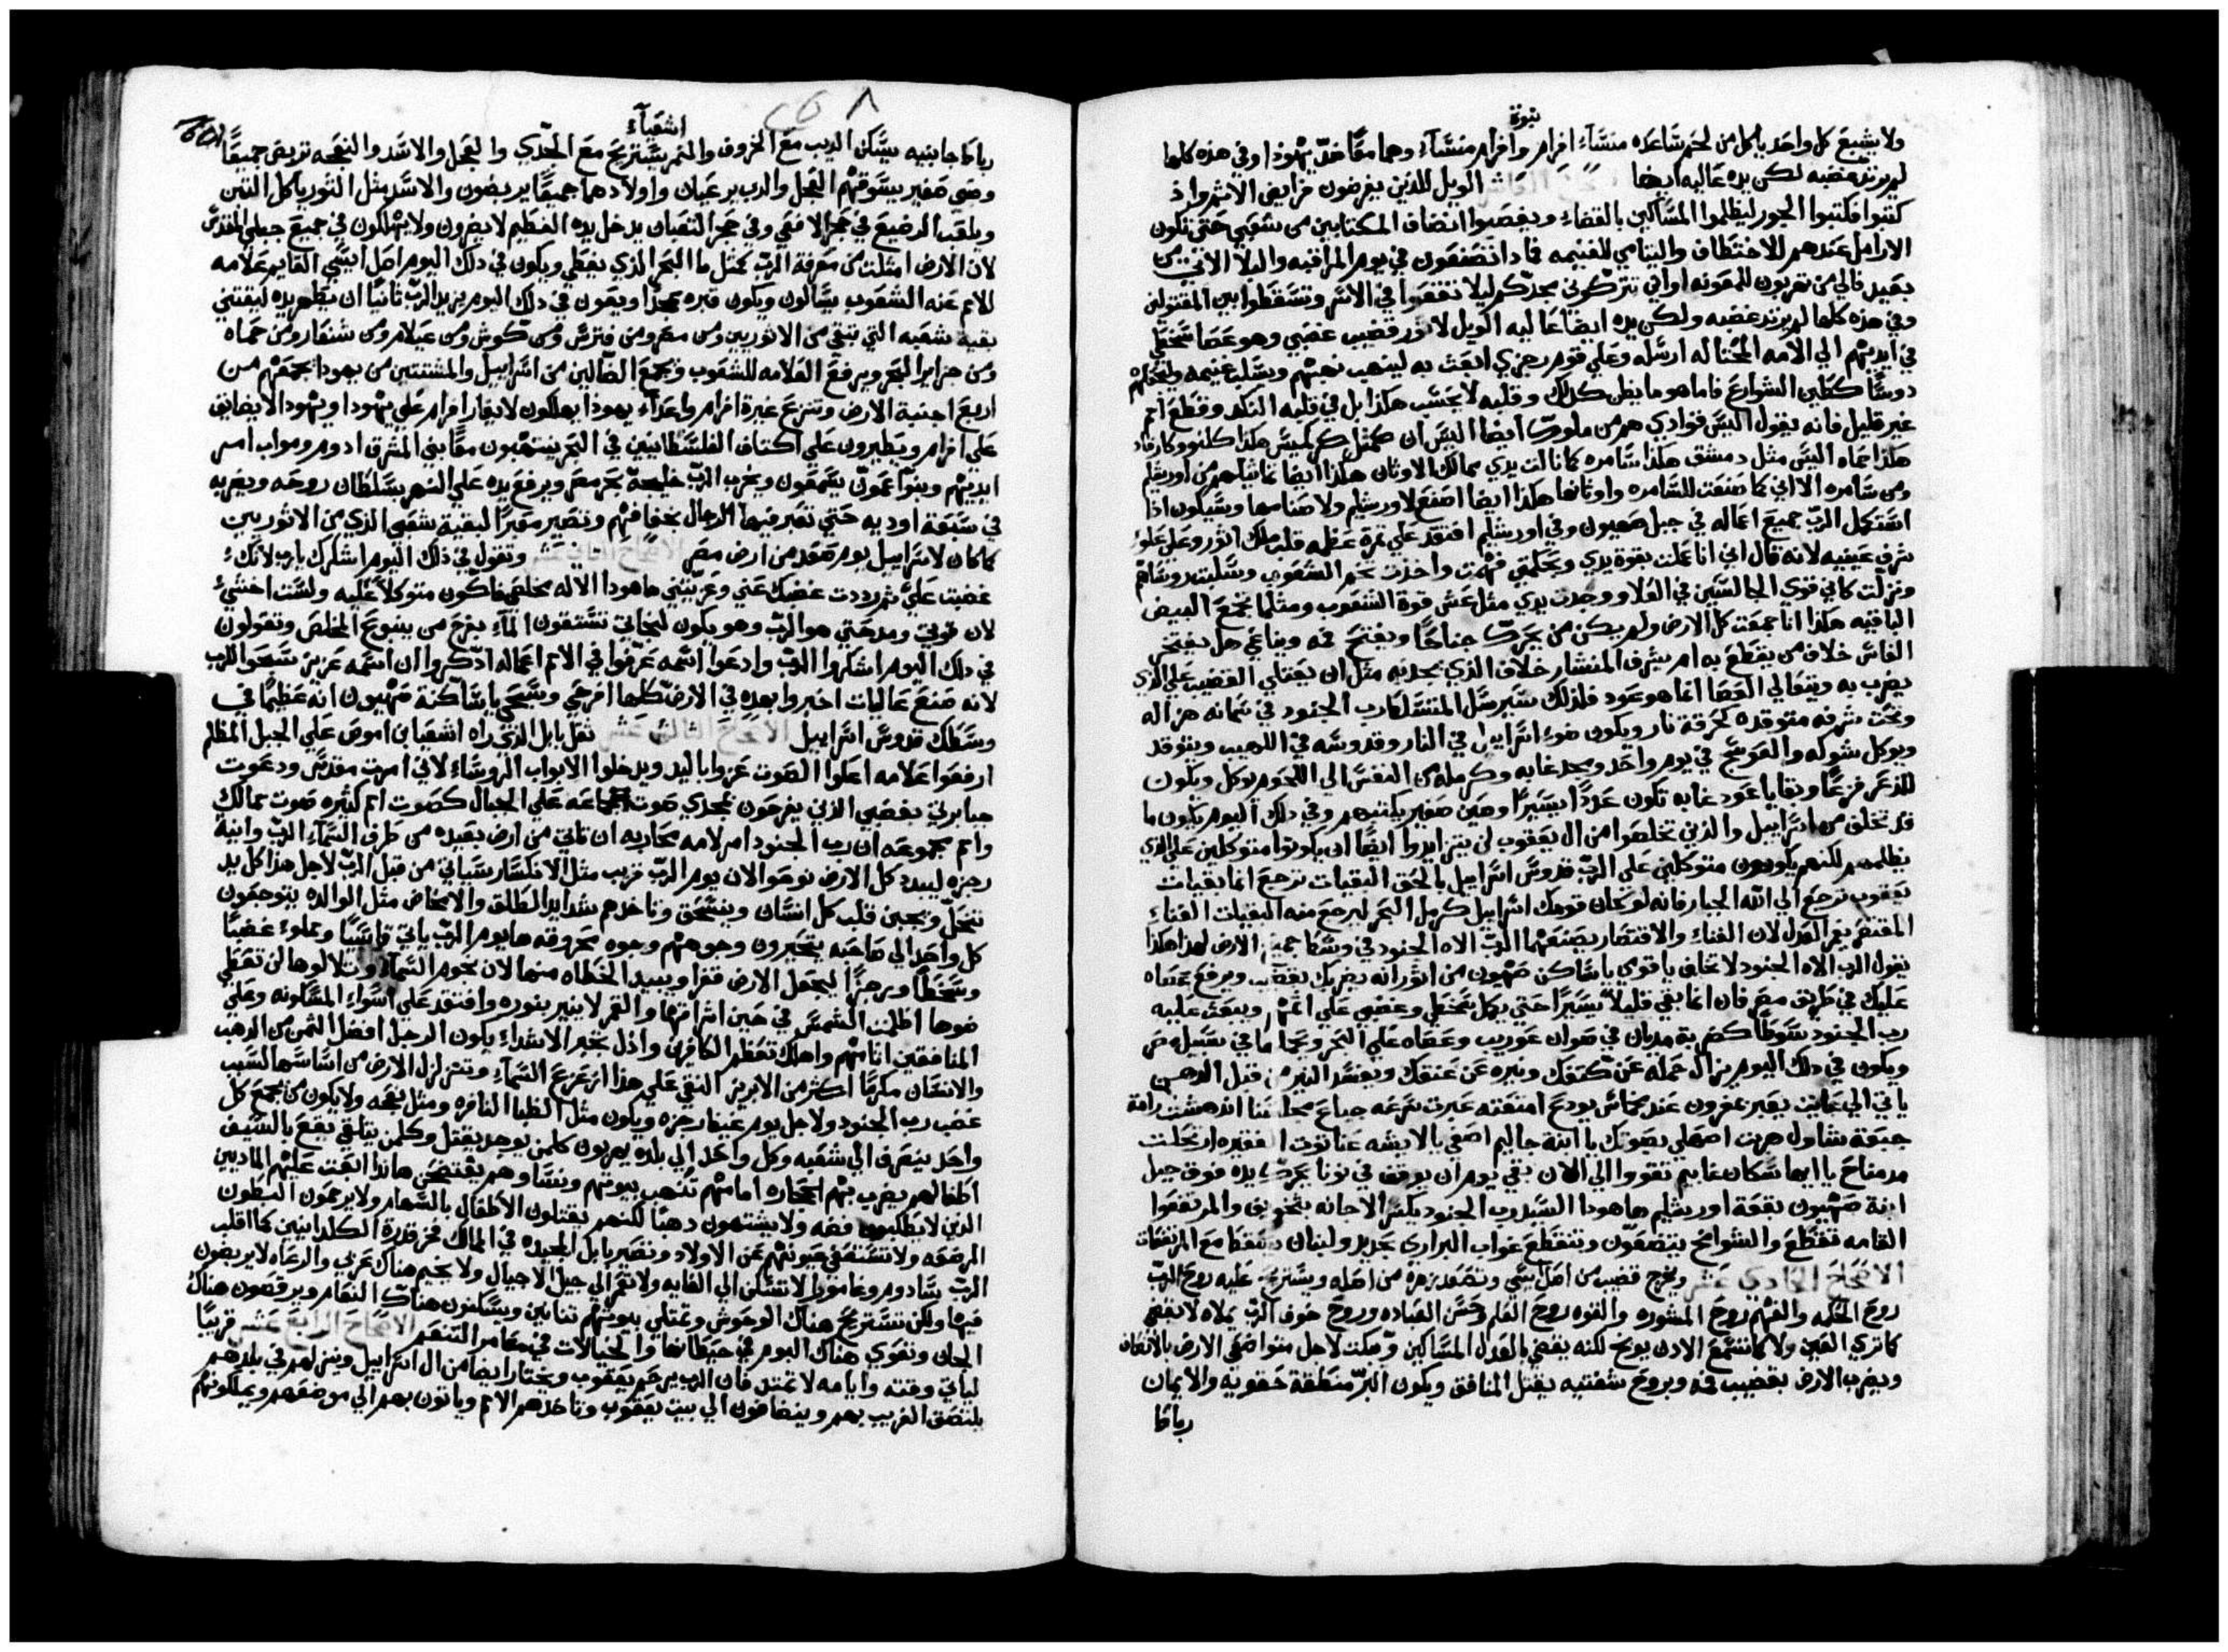 نبوة
ولا يشبع كل واحد ياكل من لحم ساعده منسآء افرام وافرام منسآء وهما معًا ضدّ يهوذا وفي هذه كلها
لم يرتد غضبه لكن يده عاليه ايضا الويل للذين يفرضون فرايض الاثم واذ
كتبوا فكتبوا الجور ليظلموا المساكين بالقضاء ويغصبوا انضاف المكتابين من شعبي حتى تكون
الارامل عندهم للاختطاف واليتامي للغنيمه فماذا تصنعون في يوم المراقبه والبلا الاتي من
بعيد فالي من تهربون للمعونه واني تتركون مجدكم ليلا تنقعوا في الاسر وتسقطوا بين المقتولين
وفي هذه كلها لم يرتد غضبه ولكن يده ايضا عاليه الويل لاثور قضيب غضبي وهو عصا سخطي
في ايديهم الي الامه المحتاله ارسله وعلي قوم رجزي ابعث به لينهب نهبهم ويسلب غنيمه ويجعلهم
دوسًا كطين الشوارع فاما هو ما يظن كذلك وقلبه لا يحسب هكذا بل في قلبه النكد وقطع امم
غير قليل فانه يقول اليس قوادي هم من ملوك ايضا اليس ان كمثل كركميس هكذا كلنوو كارفاد
هكذا حماه اليس مثل دمشق هكذا سامره كما نالت يدي ممالك الاوثان هكذا ايضا تماثيلهم من اورشليم
ومن سامره الا اني كما صنعت للسامره واوثانها هكذا ايضا اصنع لاورشليم ولا صنامها وسيكون اذا
استكمل الربّ جميع اعماله في جبل صهيون وفي اورشليم افتقد علي ثمرة عظمه قلب ملك اثور وعلي علوّ
شرف عينيه لانه قال اني انا عملت بقوة يدي وبحكمتي فهمت واخذت تخم الشعوب وسلبت رؤساهم
ونزلت كاني قوي الجالسين في العلا ووجدت يدي مثل عش قوة الشعوب ومثلما تجمع البيض
الباقيه هكذا انا جمعت كل الارض ولم يكن من يحرّك جناحًا ويفتح فمه ويناغي هل يفتخر
الفاس خلاف من يقطع به ام يشرف المنشار خلاف الذي يجذبه مثل ان يعتلي القضيب علي الذي
يضرب به ويتعالي العصا انما هو عود فلذلك سيرسل المتسلط رب الجنود في سمانه هزاله
وتحت شرفه متوقده كحرقة نار ويكون ضوء اسراييل في النار وقدوسه في اللهيب ويتوقد
ويوكل شوكه والعوسج في يوم واحد ومجد غابه وكرمله من النفس الي اللحم يوكل ويكون
للذعر فزعًا وبقايا عود غابه تكون عددًا يسيرًا وصبي صغير يكتبهم وفي ذلك اليوم يكون ما
قد تخلف من اسراييل والذين تخلصوا من ال يعقوب لن يتزايدوا ايضًا ان يكونوا متوكلين علي الذي
يظلمهم لكنهم يكونون متوكلين علي الربّ قدوس اسراييل بالحق البقيات ترجع انما بقيات
يعقوب ترجع الي الله الجبار فانه لو كان قومك اسراييل كرمل البحر ليرجع منه البقيات الفناء
المقتضر بغر العدل لان الفناء والاقتصار يصنعهما الربّ الاه الجنود في وسط جميع الارض لهذا هكذا
يقول الرب الاه الجنود لا تخاف يا قومي يا ساكن صهيون من اثور انه يضربك بقضيب ويرفع عصاه
عليك في طريق مصر فان انما بقي قليلاً يسيرًا حتي يكمل سخطي وغضبي علي اثمهم ويبعث عليه
رب الجنود سوطًا كضربة مديان في صوان عوريب وعصاه علي البحر وعجاجًا في سبيل مصر
ويكون في ذلك اليوم يزال حمله عن كتفك ونيره عن عنقك ويفسد النير من قبل الدهن
ياتي الي عايت يعبر بمغرون عند مخماس يودع امتعته عبرت سرعه جباع مجلسنا اندهشت رامة
جبعة شاول هربت اصهلي بصوتك يا ابنة جاليم اصغي يا لايشه عناتوت الفقيره ارتحلت
مدمناح يا ايها سكان غابيم تقووا الي الان بقي يوم ان يوقف في نوبا يحرّك يده فوق جبل
ابنة صهيون بقعة اورشليم ها هوذا السيد رب الجنود يكسر الاجانه بتخويف والمرتفعوا
القامه تقطع والشوامخ يتضعون وتنقطع غواب البراري بحديد ولبنان يسقط مع المرتفعات
الاصحاح الحادي عشر ويخرج قضيب من اصل يسّي وتصعد زهرة من اصله ويستريح عليه روح الربّ
روح الحكمه والفهم روح المشوره والقوه روح العلم وحسن العباده وروح خوف الربّ يملاه لا يقضي
كما تري العين ولا كما تسمع الاذن يوبخ لكنه يقضي بالعدل للمساكين ويبكت لاجل متواضعي الارض بالاتقان
ويضرب الارض بقضيب فمه وبروح شفتيه يقتل المنافق ويكون البرّ منطقة حقويه والايمان
رباطا
اشعيآء
رباطا جانبيه يسكن الذيب مع الخروف والنمر يستريح مع الجدي والعجل والاسد والنعجه تربض جميعًا
وصبي صغير يسوقهم العجل والدب يرعيان واولادهما جميعًا يربضون والاسد مثل الثور ياكل التبن
ويلعب الرضيع في جحر الافعي وفي جحر الثعبان يدخل يده الفطيم لا يضرون ولا يهلكون في جميع جبلي المقدّس
لان الارض امتلت من معرفة الربّ كمثل ما البحر الذي يغطي ويكون في ذلك اليوم اصل ايسّي القايم علامه
للامم عنه الشعوب يسالون ويكون قبره مجدًا ويكون في ذلك اليوم يزيد الربّ ثانيًا ان يظهر يده ليقتني
بقية شعبه التي تبقي من الاثوريين ومن مصر ومن فترس ومن كوش ومن عيلام ومن شنعار ومن حماه
ومن جزاير البحر ويرفع العلامه للشعوب ويجمع الضالين من اسراييل والمشتتين من يهودا يجمعهم من
اربع اجنبة الارض وتنزع غيرة افرام واعدآء يهوذا يهلكون لا يغار افرام علي يهودا ويهودا لا يضايق
علي افرام ويطيرون علي اكتاف الفلسطانيين في البحر ينتهبون معًا بني المشرق ادوم ومواب امر
ايديهم وبنو عمون يسمعون ويخرب الربّ خليجة بحر مصر ويرفع يده علي النهر بسلطان روحه ويضربه
في سبعة اوديه حتي تعبر فيها الرجال بخفافهم وتصير معبرًا لبقية شعبي الذي من الاثوريين
كما كان لاسراييل يوم صعد من ارض مصر الاصحاح الثاني عشر وتقول في ذلك اليوم اشكرك يارب لانك
غضبت عليّ ثم رددت غضبك عني وعزيتني ها هوذا الاله مخلصي فاكون متوكلاً عليه ولست اخشيء
لان قوتي ومدحتي هو الربّ وهو يكون لنجاتي تستقون المآء بفرح من ينبوع المخلص وتقولون
في ذلك اليوم اشكروا الربّ وادعوا اسمه عرّفوا في الامم اعماله اذكروا ان اسمه عزيز سبحوا للرب
لانه صنع عاليات اخبروا بهذه في الارض كلها افرحي وسبحي يا ساكنة صهيون انه عظيمًا في
وسطك قدوس اسراييل الاصحاح الثالث عشر ثقل بابل الذي راه اشعيا ابن اموص علي الجبل المظلم
ارفعوا علامه اعلوا الصوت عزوا باليد ويدخلوا الابواب الروساء لاني امرت مقدسي ودعوت
جبابرتي بغضبي الذين يفرحون بمجدي صوت الجماعه علي الجبال كصوت امم كثيره صوت ممالك
وامم مجموعه ان رب الجنود امر لامه محاربه ان تاتي من ارض بعيده من طرف السمآء الربّ وانية
رجزه ليبدد كل الارض نوحوا لان يوم الربّ قريب مثل الانكسار سياتي من قبل الربّ لاجل هذا كل يد
تنحلّ ويجبن قلب كل انسان وينسحق وتاخذهم شدايد الطلق والامخاض مثل الوالده يتوجعون
كل واحد الي صاحبه يتحيرون وجوههم وجوه محروقه ها يوم الربّ ياتي قاسيًا ومملوء غضبًا
وسخطًا ورجزًا ليجعل الارض قفرا ويبيد الخطاه منها لان نجوم السمآء وتلالوها لن تعطي
ضوها اظلمت الشمس في حين اشراقها والقمر لا ينير بنوره وافتقد علي اسواء المسكونه وعلي
المنافقين اثامهم واهلك تعظم الكافرين واذل تجبر الاشداء يكون الرجل افضل الثمن من الذهب
والانسان مكرمًا اكثر من الابريز النقي علي هذا ازعزع السمآء وتتزلزل الارض من اساسها لسبب
غضب رب الجنود ولاجل يوم غيظ رجزه ويكون مثل الظبا النافره ومثل نعجه ولا يكون من يجمع كل
واحد ينصرف الي شعبه وكل واحد الي بلده يهربون كلمن يوجد يقتل وكلمن يتلقي يقع بالسيف
اطفالهم يضرب بهم الحجاره امامهم تنهب بيوتهم ونساوهم يفتضحن هاندا ابعث عليهم الماديين
الذين لا يطلبون فضه ولا يشتهون ذهبًا لكنهم يقتلون الاطفال بالسهام ولا يرحمون البطون
المرضعه ولا تشفق عيونهم عن الاولاد وتصير بابل المجيده في الممالك فخر قدرة الكلدانيين كما اقلب
الربّ سادوم وغامورا لا تسكن الي الغايه ولا تعمر الي جيل الاجيال ولا يخيم هناك عربي والرعاه لا يربضون
فيها ولكن تستريح هناك الوحوش وتمتلي بيوتهم تنانين ويسكنون هناك النعام ويرقصون هناك
الجان وتعوي هناك البوم في حيطانها والخيالات في معامر التنعم الاصحاح الرابع عشر قريبًا
لياتي وقته وايامه لا تمتد فان الرب يرحم يعقوب ويختار ايضا من ال اسراييل وينزلهم في بلدهم
يلتصق الغريب بهم وينضافون الي بيت يعقوب وتاخذهم الامم وياتون بهم الي موضعهم ويملكونهم